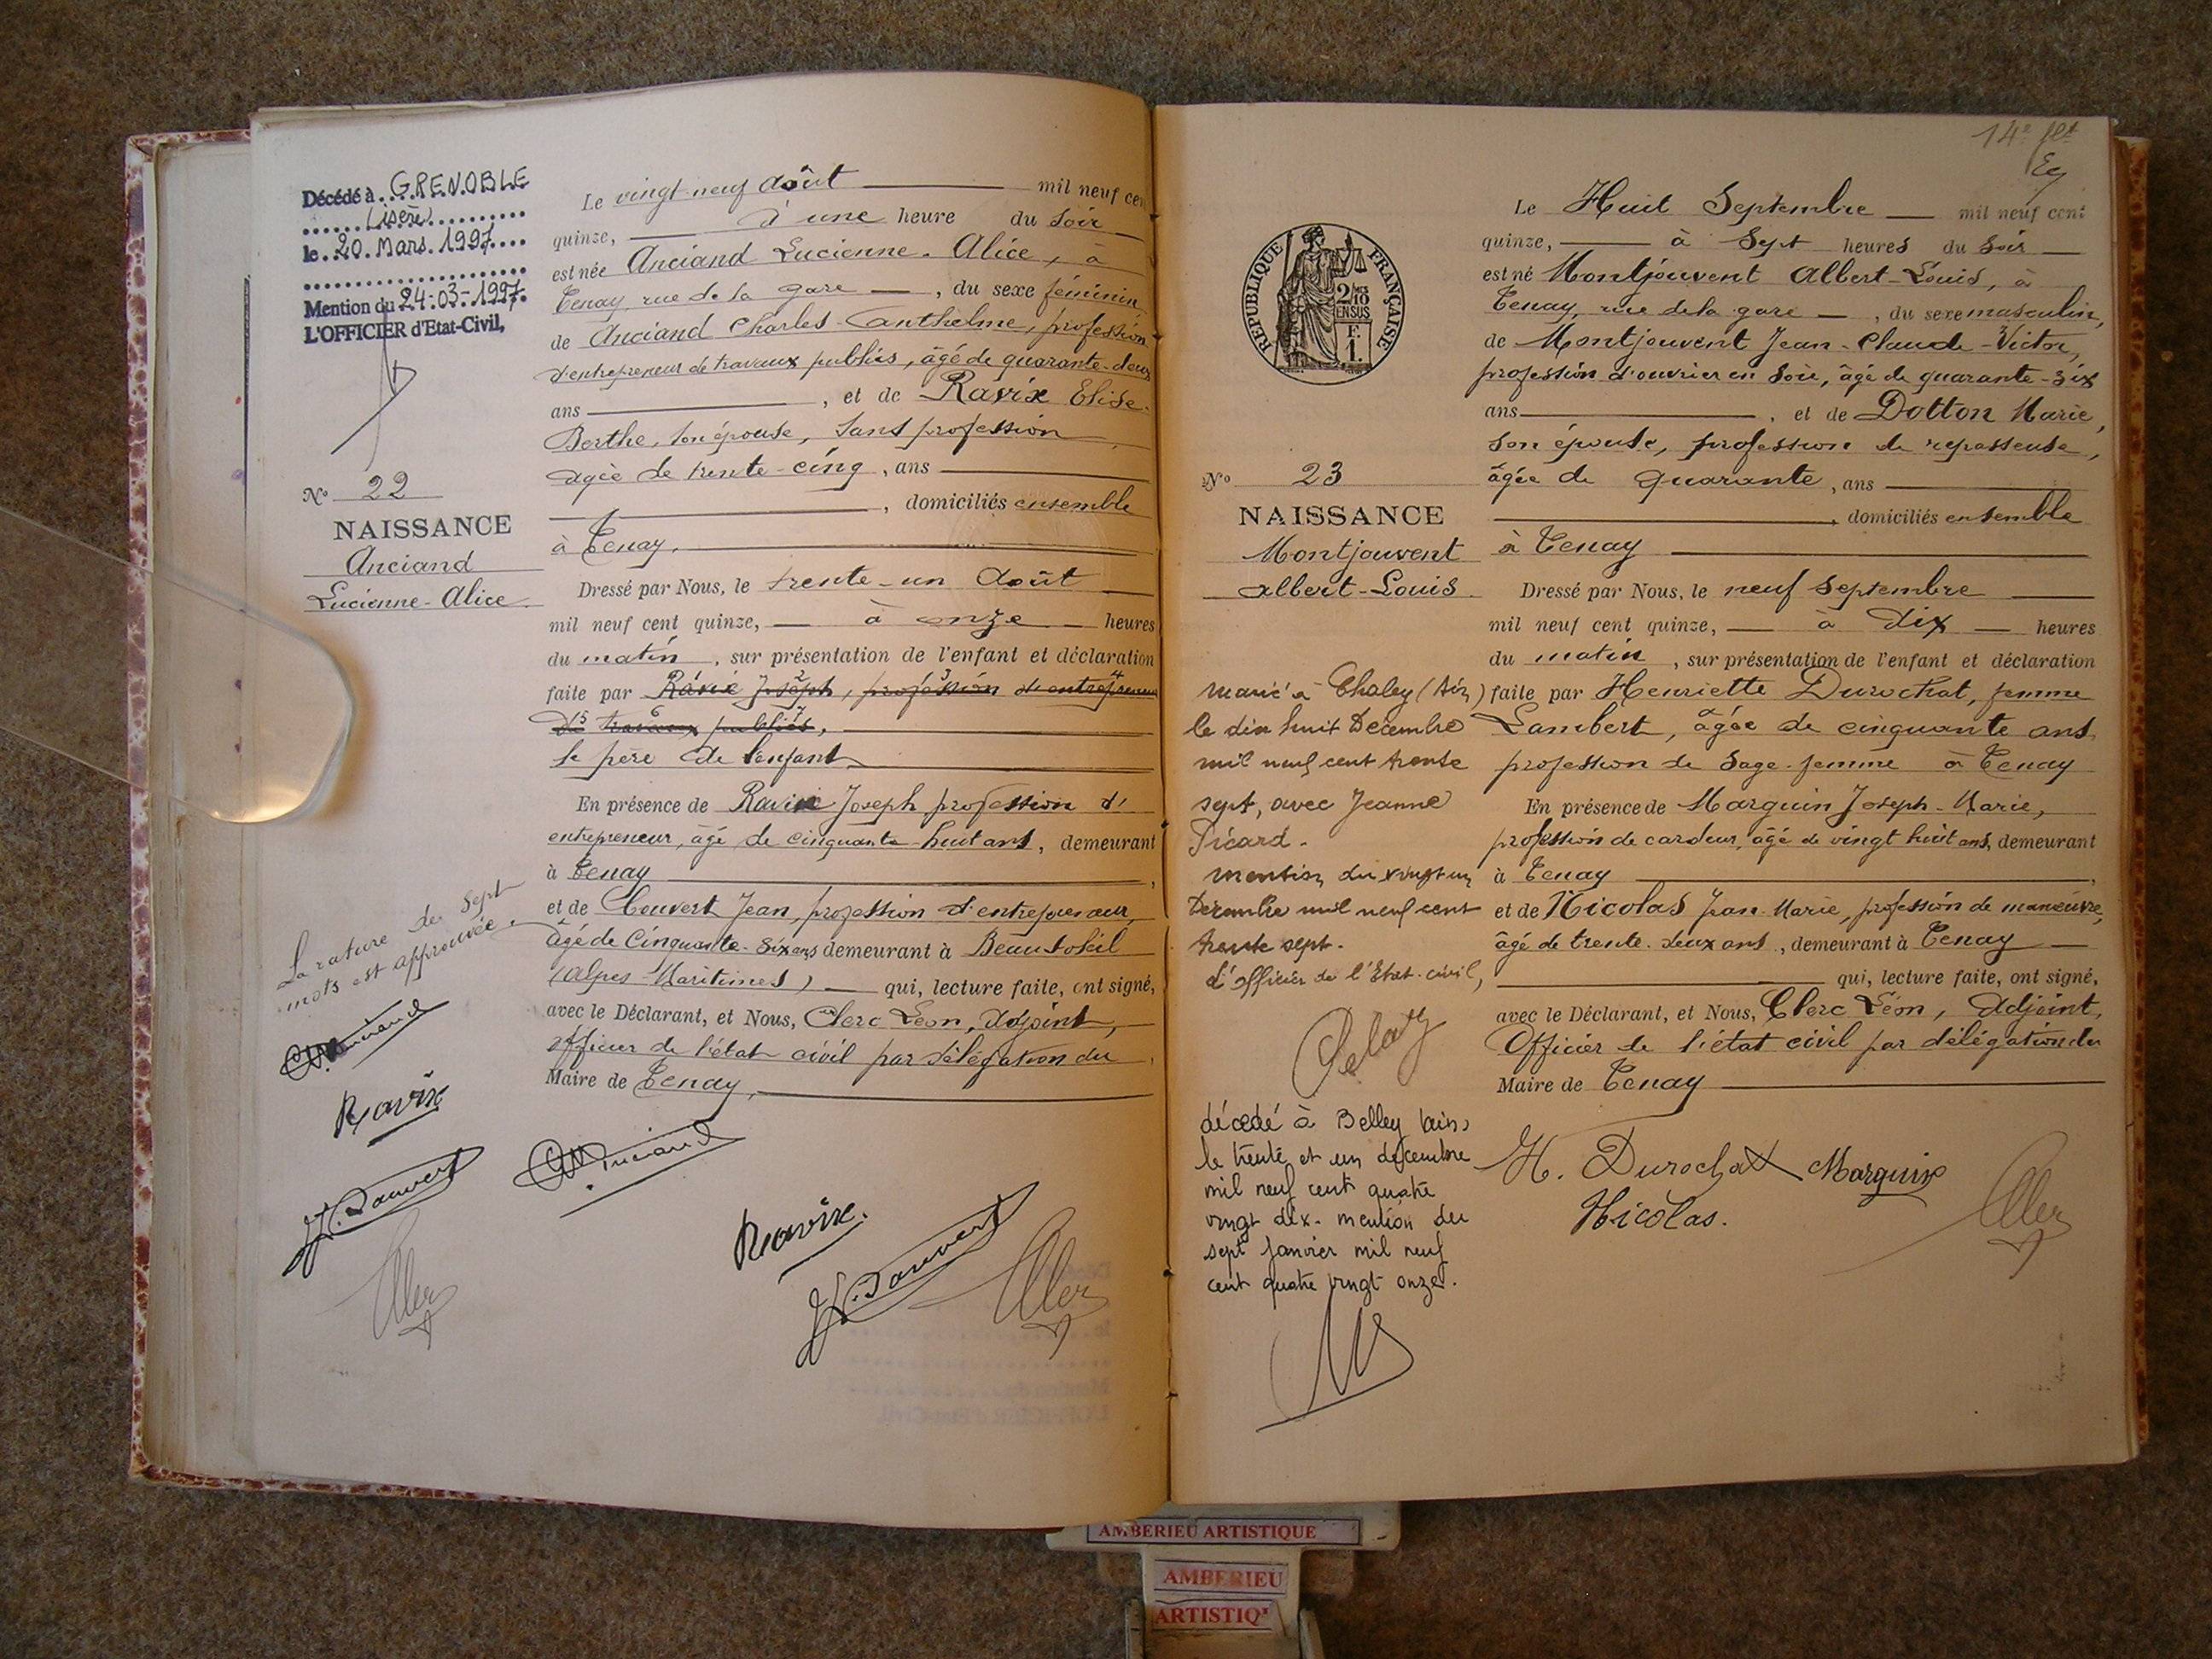 Décédé à GRENOBLE
(isère)
le 20. Mars. 1997
Mention du 24-03-1997.
L'OFFICIER d'Etat-Civil,
No 22
NAISSANCE
Anciand
Lucienne-Alice
La rature de sept
mots est approuvée.
Ravix
Le vingt-neuf Août mil neuf cen
quinze, à une heure du soir
est née Anciand Lucienne-Alice, à
Tenay, rue de la gare, du sexe féminin,
de Anciand Charles-Anthelme, profession
d'entrepreneur de travaux publics, âgé de quarante-deux
ans, et de Ravix Elise-
Berthe, son épouse, sans profession,
agée de trente-cinq, ans
, domiciliés ensemble
à Tenay.
Dressé par Nous, le trente-un Août
mil neuf cent quinze, à onze heures
du matin, sur présentation de l'enfant et déclaration
faite par Ravix Joseph, profession d'entrepreneur
de travaux publics,
le père de l'enfant
En présence de Ravix Joseph, profession d'
entrepreneur, âgé de cinquante-huit ans, demeurant
à Tenay,
et de Couvert Jean, profession d'entrepreneur,
âgé de Cinquante-six ans demeurant à Beausoleil
(Alpes-Maritimes) qui, lecture faite, ont signé,
avec le Déclarant, et Nous, Clerc Léon, Adjoint,
officier de l'état civil par délégation du
Maire de Tenay,
Anciand
Ravix.
14e flt
REPUBLIQUE FRANÇAISE
2/10 EN SUS
F.
1.
No 23
NAISSANCE
Montjouvent
Albert-Louis
marié à Chaley (Ain)
le dix huit Décembre
mil neuf cent trente
sept, avec Jeanne
Picard.
mention du vingt un
Décembre mil neuf cent
trente sept.
L'officier de l'Etat-civil,
décédé à Belley (Ain)
le trente et un décembre
mil neuf cent quatre
vingt dix. mention du
sept Janvier mil neuf
cent quatre vingt onze.
Le Huit Septembre mil neuf cent
quinze, à sept heures du soir
est né Montjouvent Albert-Louis, à
Tenay, rue de la gare, du sexe masculin,
de Montjouvent Jean-Claude-Victor,
profession d'ouvrier en soie, âgé de quarante-six
ans, et de Dotton Marie,
son épouse, profession de repasseuse,
âgée de quarante, ans
, domiciliés ensemble
à Tenay
Dressé par Nous, le neuf septembre
mil neuf cent quinze, à dix heures
du matin, sur présentation de l'enfant et déclaration
faite par Henriette Durochat, femme
Lambert, âgée de cinquante ans
profession de sage-femme à Tenay
En présence de Marguin Joseph-Marie,
profession de cardeur, âgé de vingt huit ans, demeurant
à Tenay,
et de Nicolas Jean-Marie, profession de manœuvre,
âgé de trente-deux ans, demeurant à Tenay
qui, lecture faite, ont signé,
avec le Déclarant, et Nous, Clerc Léon, Adjoint,
Officier de l'état civil par délégation du
Maire de Tenay
H. Durochat Marguin
Nicolas.
AMBERIEU ARTISTIQUE
AMBERIEU
ARTISTIQ